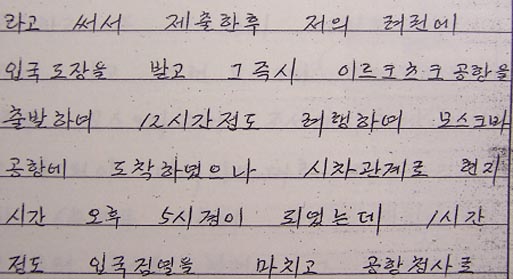 라고 써서 제출한후 저의 려권에
입국도장을 받고 그즉시 이르크츠크공항을
출발하여 12시간정도 려행하여 모스크바
공항에 도착하였으나 시차관계로 현지
시간 오후 5시경이 되였는데 1시간
정도 입국검열을 마치고 공항청사로